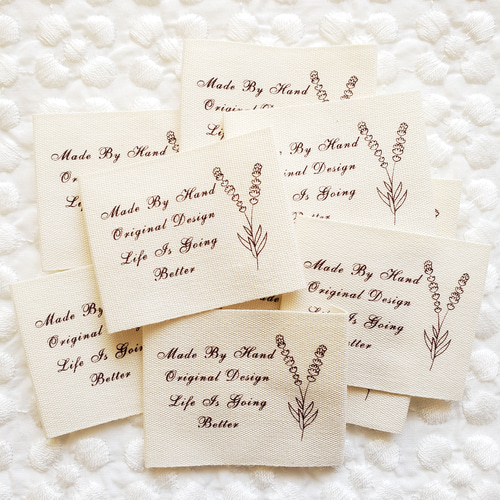 Made By Hand
Original Design
Made By Hand
Original Design
Life Is Going
Better
Made By Hand
Made By Hand
Original Design
Life Is Going
Better
Made By Hand
Original Design
Life Is Going
Better
Made By Hand
Original
Life Is Going
Better
Made By Hand
Original Design
Life Is Going
Better